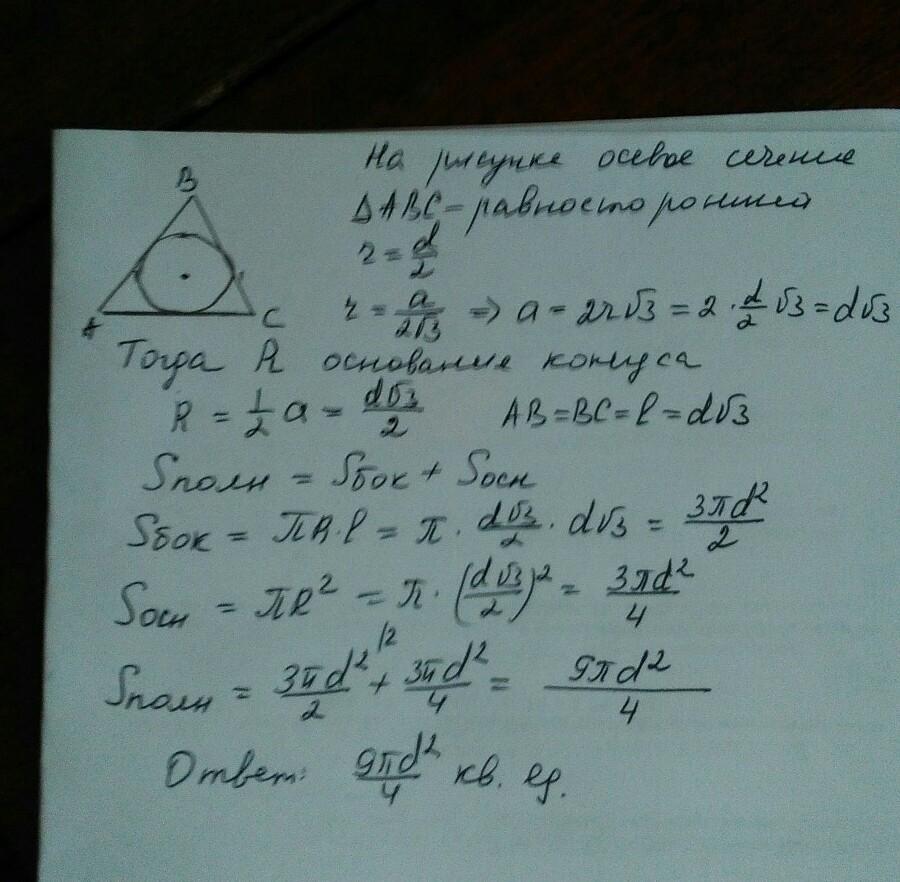 На рисунке осевое сечение
B
ΔABC – равносторонний
r = d/2
A C
r = a/2√3 ⇒ a = 2r√3 = 2 · d/2 √3 = d√3
Тогда R основание конуса
R = 1/2 a = d√3/2 AB = BC = l = d√3
Sполн = Sбок + Sосн
Sбок = πR·l = π · d√3/2 · d√3 = 3πd²/2
Sосн = πR² = π · (d√3/2)² = 3πd²/4
Sполн = 3πd²/2 |2 + 3πd²/4 = 9πd²/4
Ответ: 9πd²/4 кв. ед.